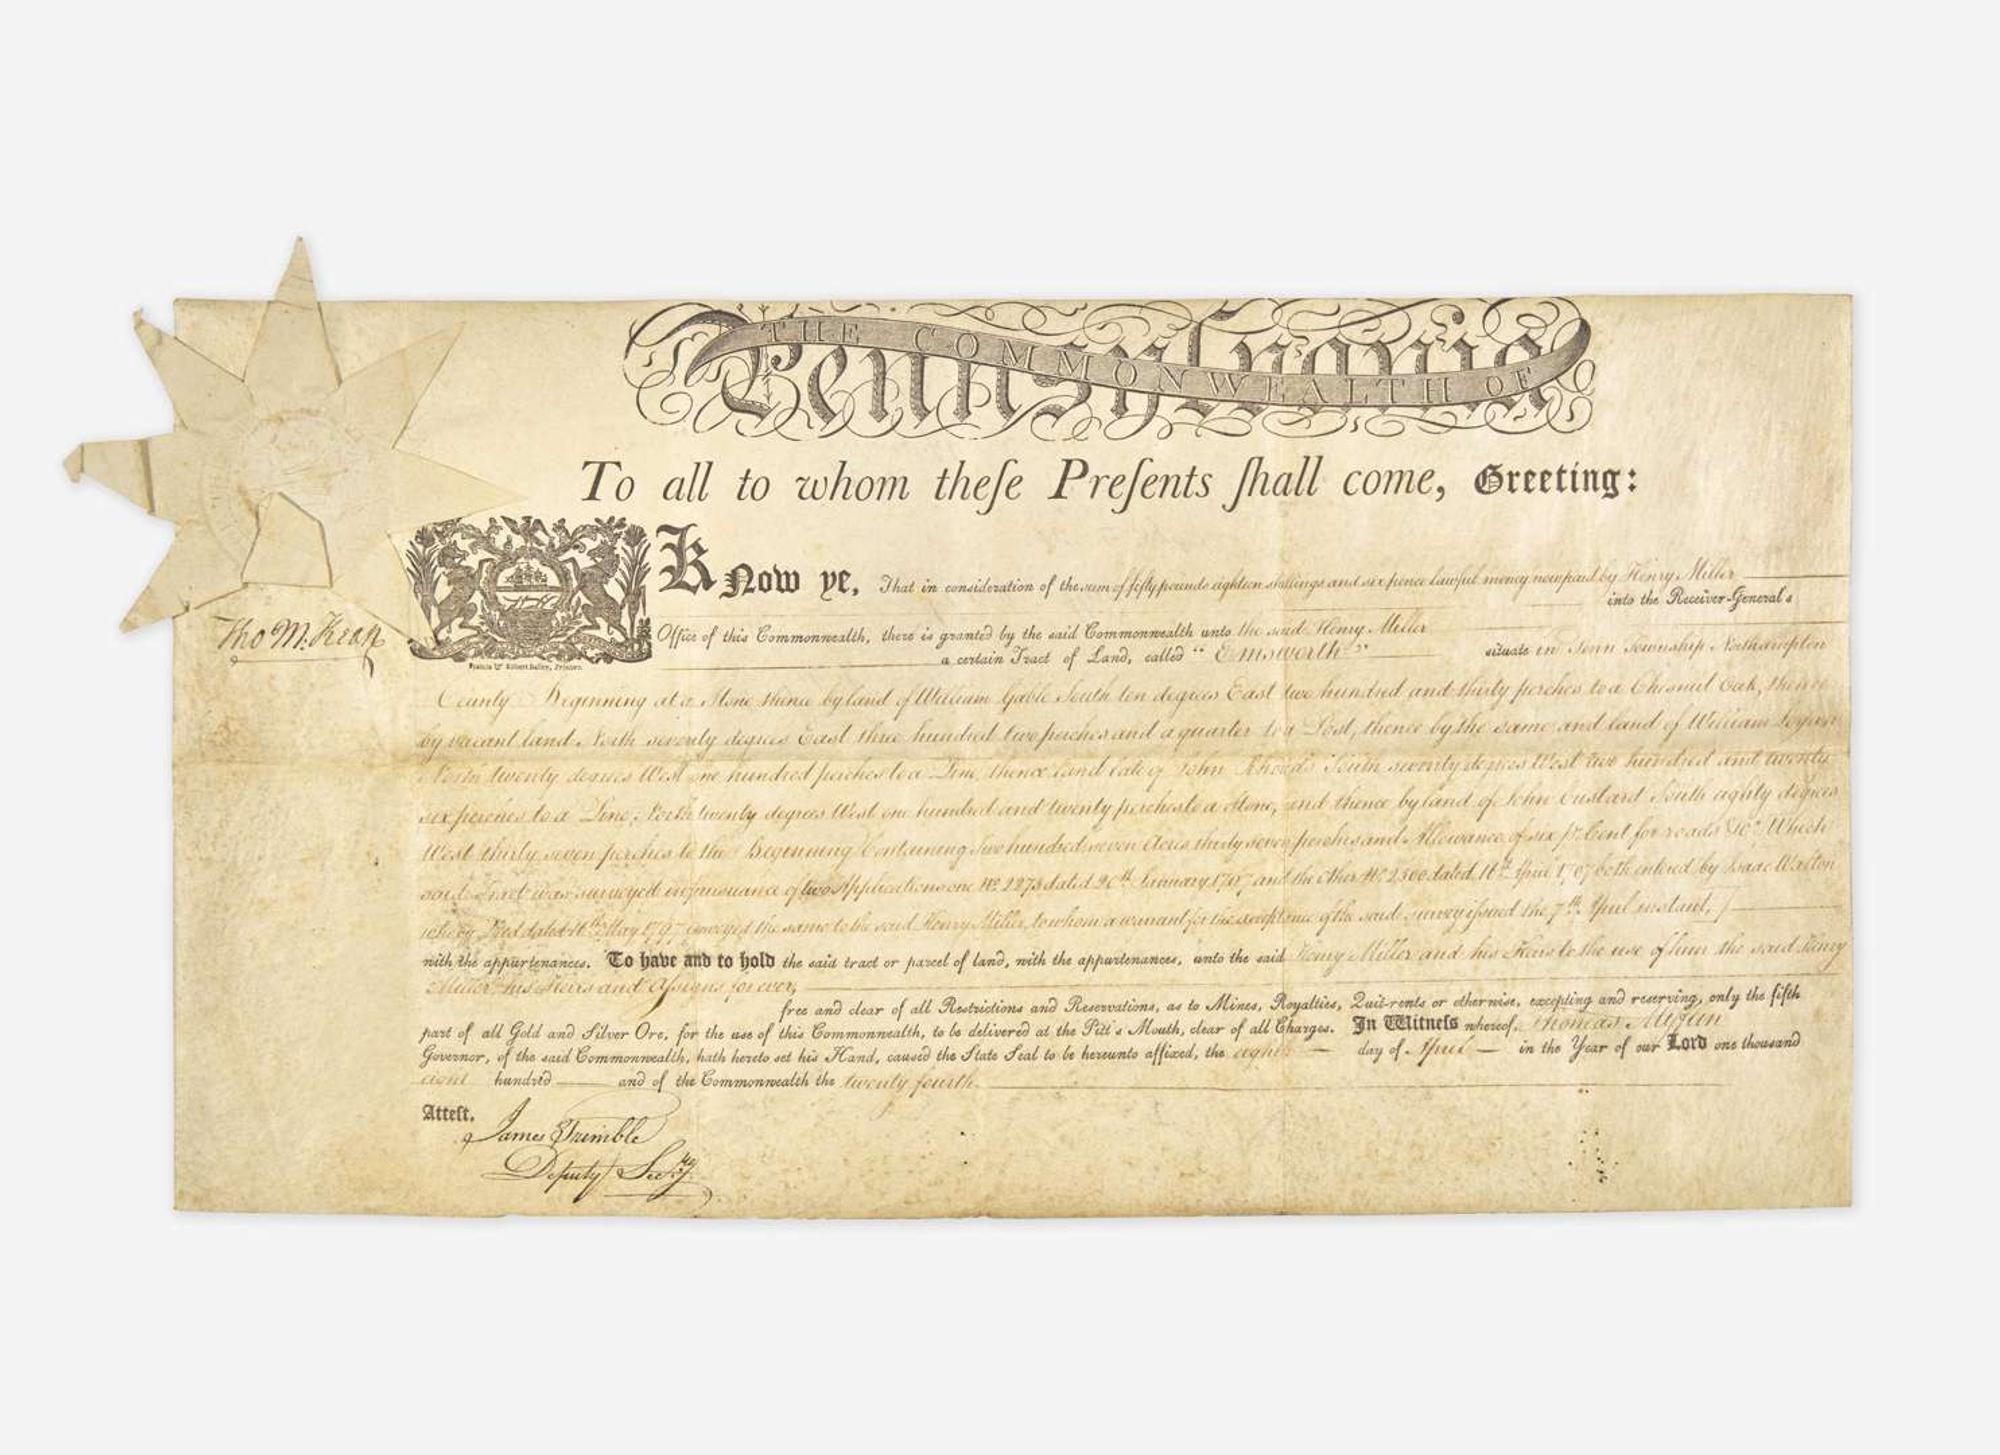 THE COMMONWEALTH OF
Pennsylvania
To all to whom theſe Preſents ſhall come, Greeting:
Know ye, That in consideration of the sum of fifty pounds eighteen shillings and six pence lawful money now paid by Henry Miller
into the Receiver-General's
Tho M:Kean
Office of this Commonwealth, there is granted by the said Commonwealth unto the said Henry Miller
a certain Tract of Land, called "Emsworth" situate in Penn Township Northampton
Francis & Robert Bailey, Printers.
County Beginning at a Stone thence by land of William Gable South ten degrees East two hundred and thirty perches to a Chesnut Oak, thence
by vacant land North seventy degrees East three hundred two perches and a quarter to a Post, thence by the same and land of William
North twenty degrees West one hundred perches to a Pine, thence land late of John Rhoads South seventy degrees West two hundred and twenty
six perches to a Pine, North twenty degrees West one hundred and twenty perches to a Stone, and thence by land of John Custard South eighty degrees
West thirty seven perches to the Beginning Containing Two hundred seven Acres thirty seven perches and Allowance of six pr Cent for roads &c. Which
said Tract was surveyed in pursuance of two Applications one No. 2273 dated 20th January 1767 and the other No. 2500 dated 16th April 1767 both entered by Isaac Walton
who by Deed dated 16th May 1767 conveyed the same to the said Henry Miller, to whom a warrant for the acceptance of the said survey issued the 7th April instant.
with the appurtenances. To have and to hold the said tract or parcel of land, with the appurtenances, unto the said Henry Miller and his Heirs to the use of him the said Henry
Miller his Heirs and Assigns forever,
free and clear of all Restrictions and Reservations, as to Mines, Royalties, Quit-rents or otherwise, excepting and reserving, only the fifth
part of all Gold and Silver Ore, for the use of this Commonwealth, to be delivered at the Pitt's Mouth, clear of all Charges. In Witneſs whereof, Thomas Mifflin
Governor, of the said Commonwealth, hath hereto set his Hand, caused the State Seal to be hereunto affixed, the eighth day of April in the Year of our Lord one thousand
eight hundred and of the Commonwealth the twenty fourth.
Atteſt.
James Trimble
Deputy Secry